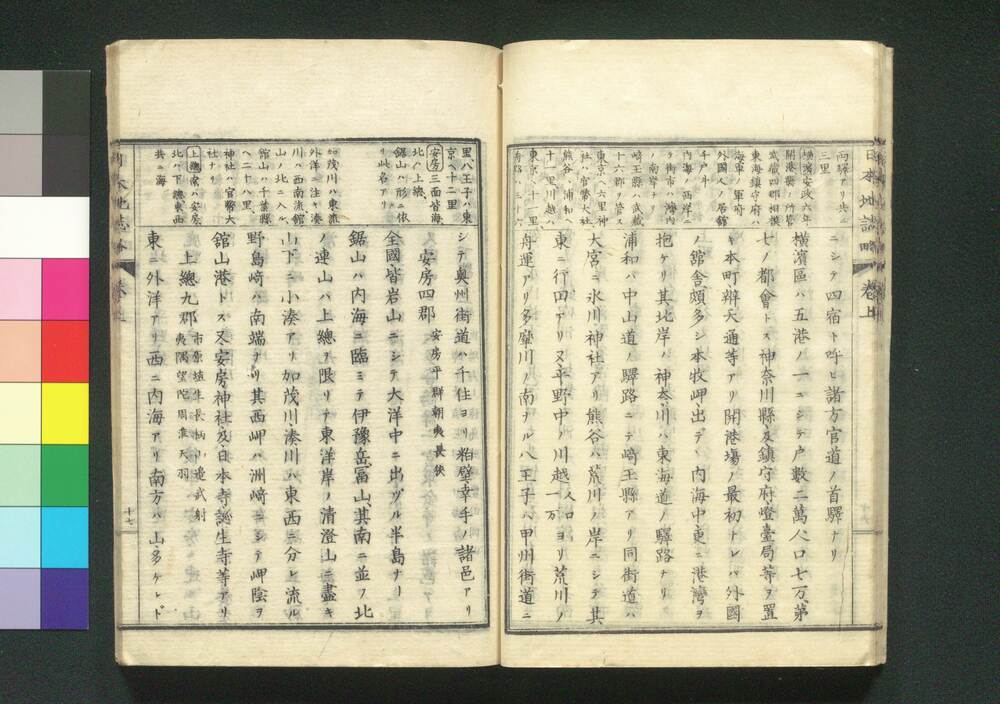 日本地誌略 巻上
兩驛アリ共ニ
三里
橫濱安政六年
開港場ノ所管
武蔵四郡相模
東海鎮守府ハ
海軍ノ軍府
外國人ノ居館
内海ノ西洋ニ
崎玉縣ハ武蔵
十六郡ヲ管ス
東京ヘ六里神
社ハ官幣大社
熊谷ハ浦和ヘ
十一里川越ハ
東京ヘ十一里
ニシテ四宿ト呼ヒ諸方官道ノ首驛ナリ
橫濱區ハ五港ノ一ニシテ户數二萬人口七万第
七ノ都會トス神奈川縣及鎮守府燈臺局等ヲ置
キ本町辯天通等アリ開港塲ノ最初トレハ外國
ノ舘舎頗多シ本牧岬出テヽ内海中東ニ港灣ヲ
抱ケリ其北岸ハ神奈川ハ東海道ノ驛路ナリ
浦和ハ中山道ノ驛路ニテ崎玉縣アリ同街道ハ
大宮ニ氷川神社アリ熊谷ハ荒川ノ岸ニシテ其
東ニ行田アリ又平野中ノ川越人口一万ヨリ荒川ノ
舟運アリ多摩川ノ南ナル八王子ハ甲州街道ニ
里八王子ハ東
京ヘ十二里
安房三面皆海
北ハ上總
鋸山ハ形ニ依
リ此名アリ
加茂川ハ東流
外洋ニ注キ湊
川ハ西南流館
山ノ北ニ入ル
館山ハ千葉縣
ヘ二十八里
神社ハ官幣大
社ナリ
上總南ハ安房
北ハ下總東西
共ニ海
シテ奥州街道ハ千住ヨリ粕壁幸手ノ諸邑アリ
安房四郡 安房平群朝夷長狹
全國皆岩山ニシテ大洋中ニ出ヅル半島ナリ
鋸山ハ内海ニ臨ミテ伊豫岳冨山其南ニ並フ北
ノ連山ハ上總ヲ限リテ東洋岸ノ清澄山ニ盡キ
山下ニ小湊アリ加茂川湊川ハ東西ニ分レ流ル
野島﨑ハ南端ナリ其西岬ハ洲﨑ニシテ岬陰ヲ
舘山港トス又安房神社及日本寺誕生寺等アリ
上總九郡 市原埴生長柄山邊武射夷隅望陀周淮天羽
東ニ外洋アリ西ニ内海アリ南方ハ山多ケレド
十七